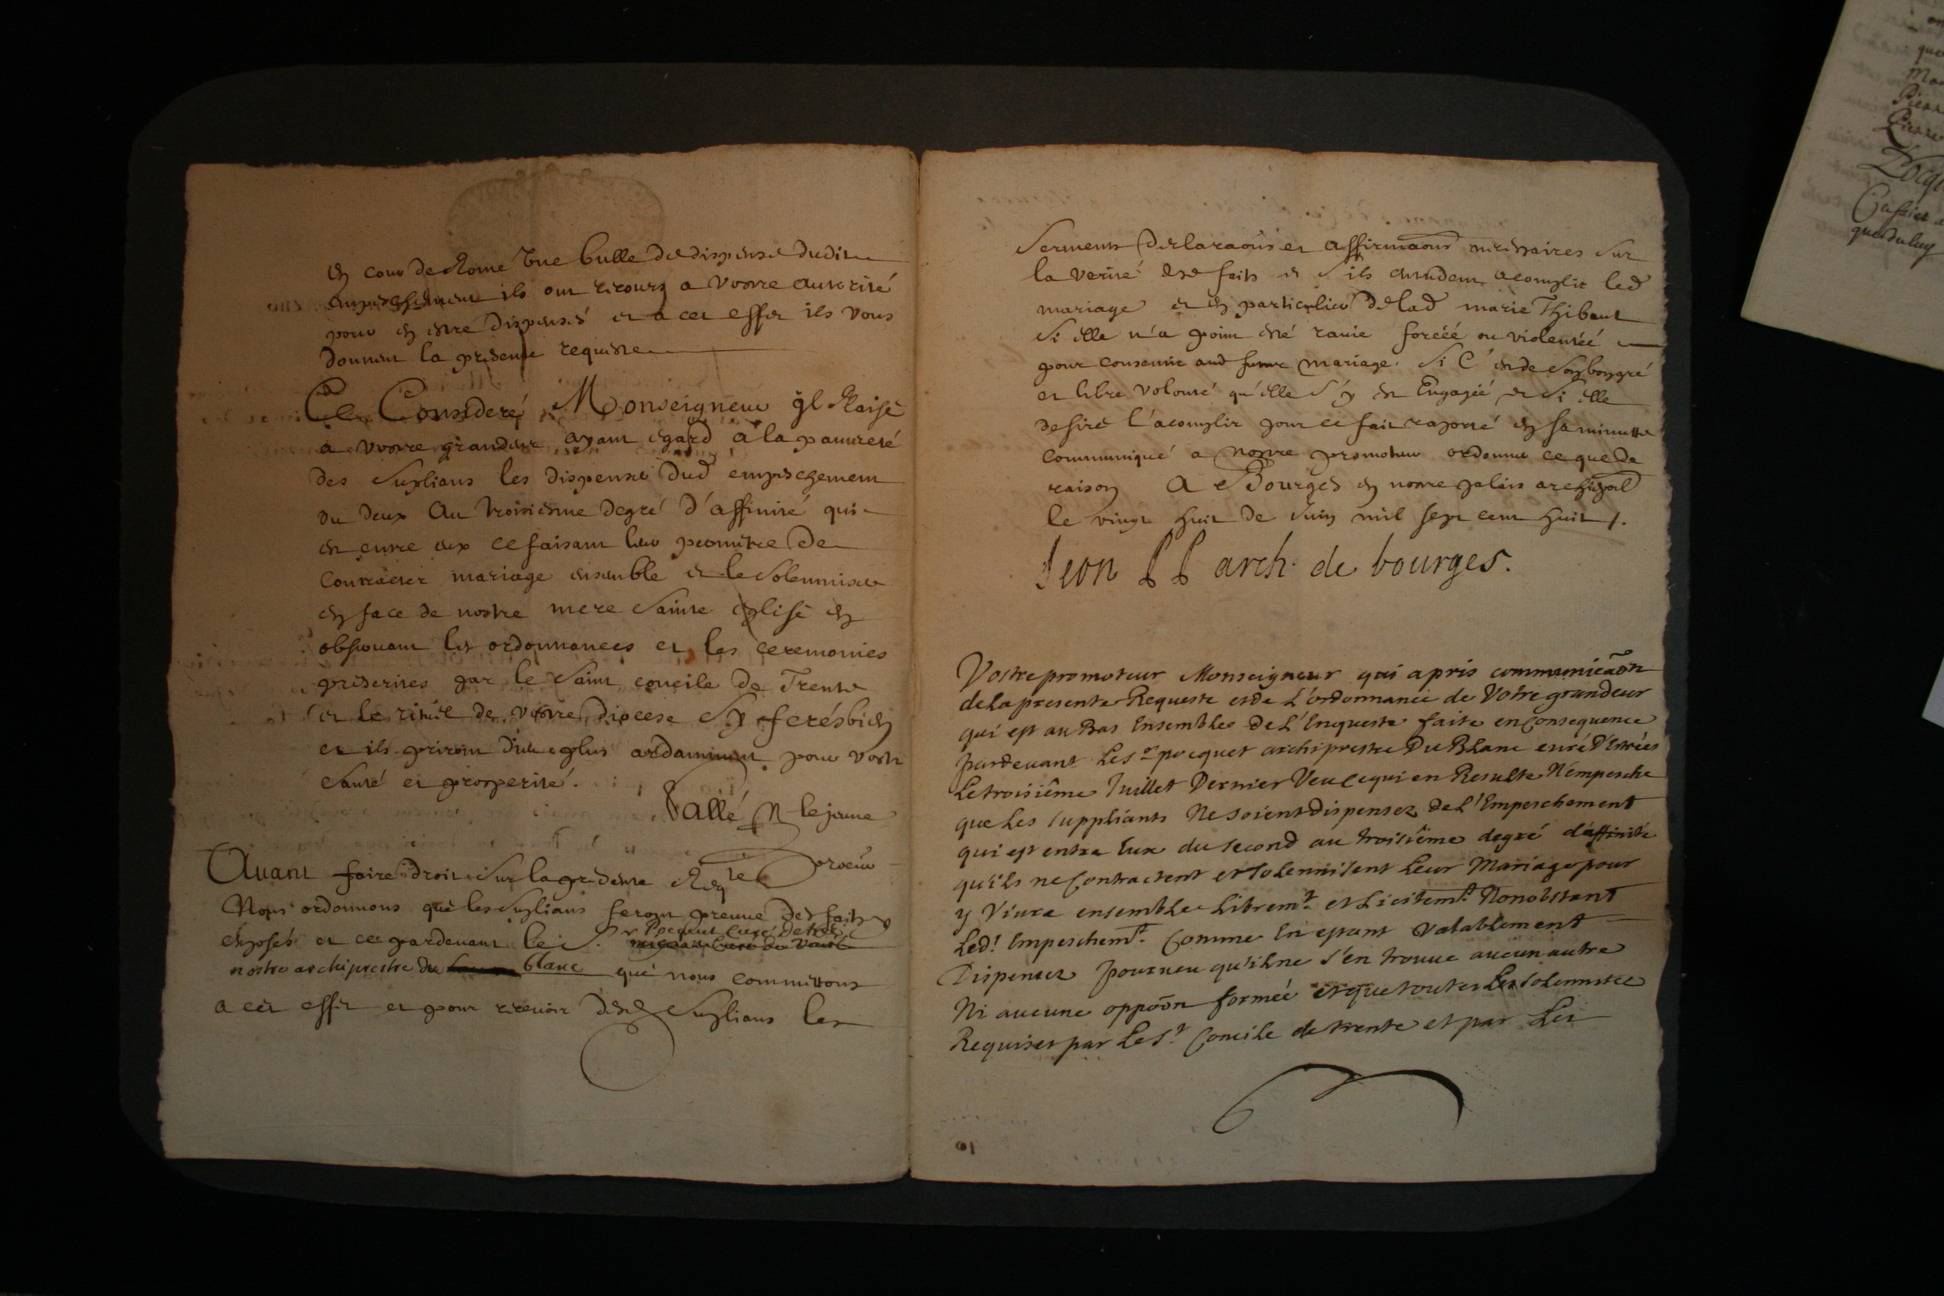 en cour de Rome une bulle de dispense dudit
empeschement ils ont recours a vostre autorité
pour en estre dispensés et a cet effet ils vous
donnent la presente requeste
Ce Consideré Monseigneur il Plaise
a vostre grandeur ayant egard a la pauvreté
des suplians les dispenser dud empeschement
du deux au troisiesme degré d'affinité qui
est entre eux ce faisant leur permettre de
contracter mariage ensemble et le solemniser
en face de nostre mere sainte eglise en
observant les ordonnances et les ceremonies
prescrites par le saint concile de Trente
et le rituel de vostre diocese sy ferés bien
et ils priront dieu plus ardamment pour vostre
santé et prosperité.
Vallé lejeune
Avant faire droit sur la presente Reqte
Nous ordonnons que les suplians feront preuve des faits y
exposés et ce pardevant le s.
Pocquet curé
nostre archiprestre du blanc que nous committons
a cet effet et pour recevoir desd suplians les
serments declaraons et affirmaons necessaires sur
la verité desd faits et s'ils entendent acomplir led
mariage et en particulier de lad marie Thibaut
si elle n'a point esté ravie forcéé ou violentéé
pour consentir aud futur mariage. si c'est de son bon gré
et libre volonté qu'elle s'y est Engagéé et si elle
desire l'acomplir pour ce fait raporté en sa minutte
communiqué a nostre promoteur ordonner ce que de
raison A Bourges en nostre palais archiepal
le vingt huit de juin mil sept cent huit /.
Leon PP arch. de bourges.
Vostre promoteur Monseigneur qui a pris communicaon
de la presente Requeste et de L'ordonnance de Votre grandeur
qui est au Bas Ensemble de L'Enqueste faite en Consequence
pardevant Le sr pocquet archiprestre Du Blanc curé D'Estrées
Le troisiême Juillet Dernier Veu ce qui en Resulte N'empesche
que Les suppliants Ne soient dispensez de L'Empeschement
qui est entre Eux du second au troisiême degré d'affinité
qu'ils ne Contractent et solemnisent Leur Mariage pour
y Vivre ensemble Librem.t et Licitem.t Nonobstant
Led.t Empeschem.t Comme En estant Valablement
Dispensez pourveu qu'il ne s'en trouve aucun autre
Ni aucune oppoon forméé et que toutes Les solemnitez
Requises par Le s.t Concile de trente et par Les